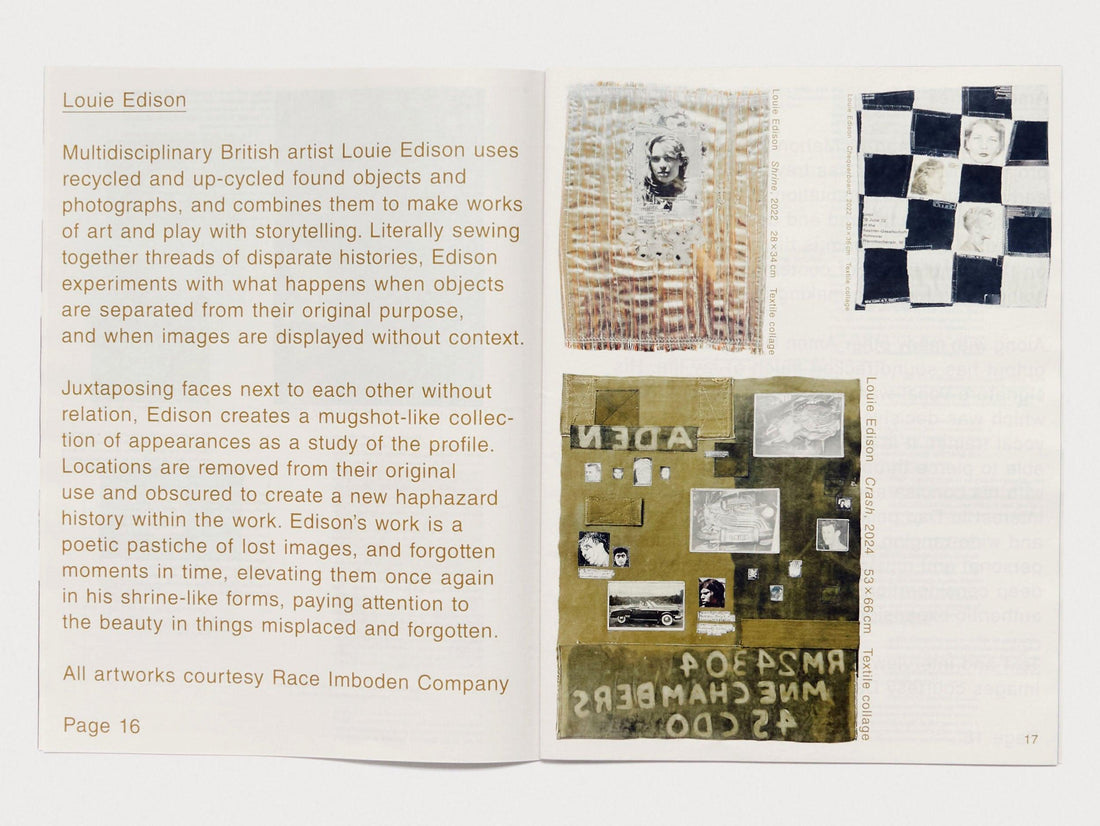 Louie Edison
Multidisciplinary British artist Louie Edison uses
recycled and up-cycled found objects and
photographs, and combines them to make works
of art and play with storytelling. Literally sewing
together threads of disparate histories, Edison
experiments with what happens when objects
are separated from their original purpose,
and when images are displayed without context.
Juxtaposing faces next to each other without
relation, Edison creates a mugshot-like collec-
tion of appearances as a study of the profile.
Locations are removed from their original
use and obscured to create a new haphazard
history within the work. Edison’s work is a
poetic pastiche of lost images, and forgotten
moments in time, elevating them once again
in his shrine-like forms, paying attention to
the beauty in things misplaced and forgotten.
All artworks courtesy Race Imboden Company
Page 16
Louie Edison Shrine, 2022 28 × 34 cm Textile collage
Louie Edison Chequerboard, 2022 30 × 36 cm Textile collage
ADEN
Louie Edison Crash, 2024 53 × 66 cm Textile collage
RM24304
MNE CHAMBERS
45 CDO
17